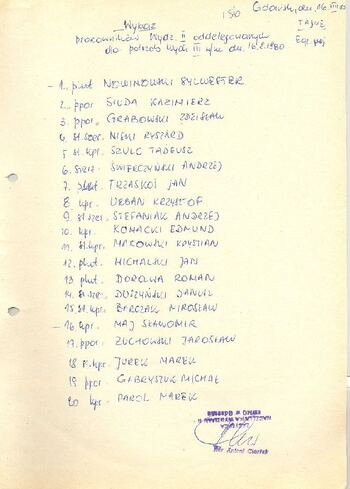 Gdańsk, dn. 16.VIII.80
150
TAJNE
Wykaz
Egz. poj
pracowników Wydz. II oddelegowanych
do potrzeb Wydz. III w/m dn. 16.8.1980
1. plut NOWINOWSKI SYLWESTER
2. ppor SIUDA KAZIMIERZ
3. ppor. GRABOWSKI ZDZISŁAW
4 st. szer. NISKI RYSZARD
5 st. kpr. SZULC TADEUSZ
6. SWIERCZYŃSKI ANDRZEJ
7. plut. TRZASKOŚ JAN
8 kpr. URBAN KRZYSZTOF
9 st. szer. STEFANIAK ANDRZEJ
10. kpr. KONACKI EDMUND
11. st. kpr. MAKOWSKI KRYSTIAN
12. plut. MICHALSKI JAN
13 plut. DOROLWA ROMAN
14. st. szer. DUSZYŃSKI JANUSZ
15 st. kpr. BARCZAK MIROSŁAW
16 kpr. MAJ SŁAWOMIR
17. ppor. ŻUCHOWSKI JAROSŁAW
18 st. kpr. JUREK MAREK
19 ppor. GABRYSZUK MICHAŁ
20 kpr. PAROL MAREK
ZASTĘPCA
NACZELNIKA WYDZIAŁU II
KWMO w Gdańsku
Antoni